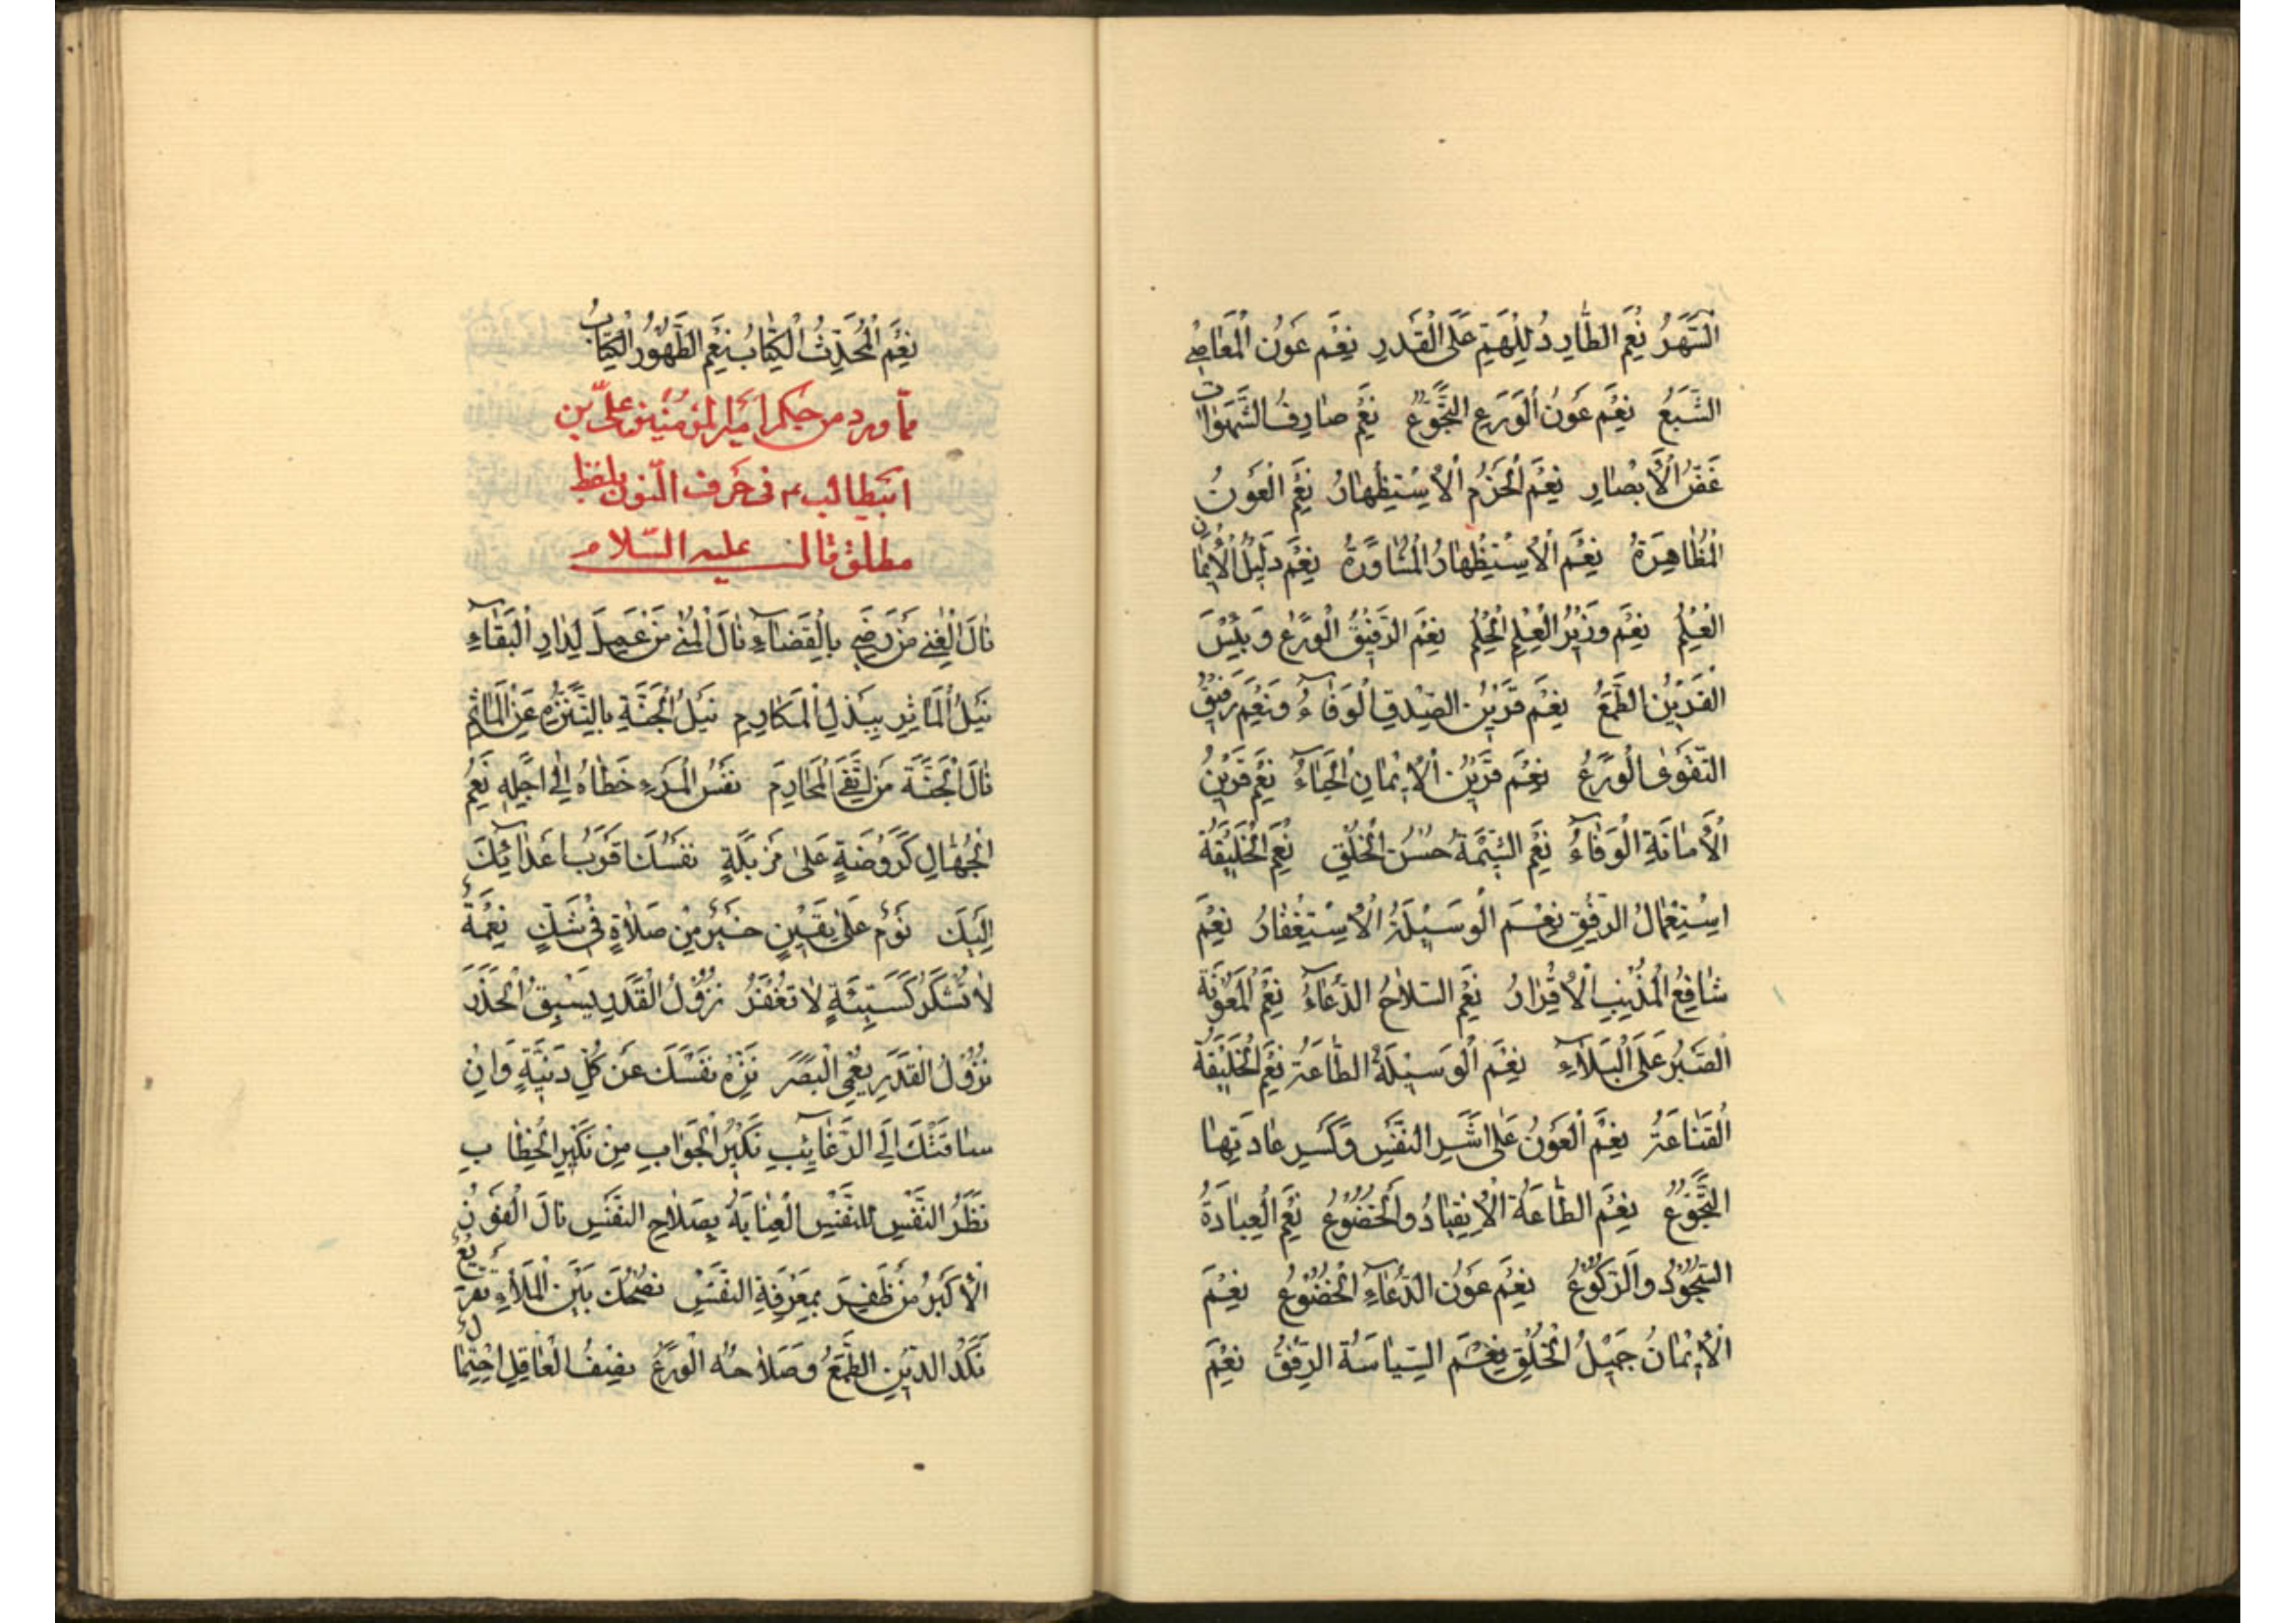 السَّهَرُ نِعْمَ الطَّارِدُ لِلْهَمِّ عَلَى الْقَدَرِ نِعْمَ عَوْنُ الْمَعَاصِي
الشَّبَعُ نِعْمَ عَوْنُ الْوَرَعِ التَّجَوُّعُ نِعْمَ صَارِفُ الشَّهَوَاتِ
غَضُّ الْأَبْصَارِ نِعْمَ الْحَزْمُ الْاِسْتِظْهَارُ نِعْمَ الْعَوْنُ
الْمُظَاهَرَةُ نِعْمَ الْاِسْتِظْهَارُ الْمُشَاوَرَةُ نِعْمَ دَلِيلُ الْإِيمَانِ
الْعِلْمُ نِعْمَ وَزِيرُ الْعِلْمِ الْحِلْمُ نِعْمَ الرَّفِيقُ الْوَرَعُ وَبِئْسَ
الْقَرِينُ الطَّمَعُ نِعْمَ قَرِينُ الصِّدْقِ الْوَفَاءُ وَنِعْمَ رَفِيقُ
التَّقْوَى الْوَرَعُ نِعْمَ قَرِينُ الْإِيمَانِ الْحَيَاءُ نِعْمَ قَرِينُ
الْأَمَانَةِ الْوَفَاءُ نِعْمَ الشِّيمَةُ حُسْنُ الْخُلْقِ نِعْمَ الْخَلِيقَةُ
اِسْتِعْمَالُ الرِّفْقِ نِعْمَ الْوَسِيلَةُ الْاِسْتِغْفَارُ نِعْمَ
شَافِعُ الْمُذْنِبِ الْإِقْرَارُ نِعْمَ السِّلَاحُ الدُّعَاءُ نِعْمَ الْمَعُونَةُ
الصَّبْرُ عَلَى الْبَلَاءِ نِعْمَ الْوَسِيلَةُ الطَّاعَةُ نِعْمَ الْخَلِيقَةُ
الْقَنَاعَةُ نِعْمَ الْعَوْنُ عَلَى أَشَرِ النَّفْسِ وَكَسْرِ عَادَتِهَا
التَّجَوُّعُ نِعْمَ الطَّاعَةُ الْاِنْقِيَادُ وَالْخُضُوعُ نِعْمَ الْعِبَادَةُ
السُّجُودُ وَالرُّكُوعُ نِعْمَ عَوْنُ الدُّعَاءِ الْخُضُوعُ نِعْمَ
الْإِيمَانُ جَمِيلُ الْخُلْقِ نِعْمَ السِّيَاسَةُ الرِّفْقُ نِعْمَ
نِعْمَ الْمُحَدِّثُ الْكِتَابُ نِعْمَ الطَّهُورُ التُّرَابُ
مما ورد من حكم أمير المؤمنين على بن
ابيطالب ع فى حرف النون بلفظ
مطلق قال عليه السلام
نَالَ الْغِنَى مَنْ رَضِيَ بِالْقَضَاءِ نَالَ الْمُنَى مَنْ عَمِلَ لِدَارِ الْبَقَاءِ
نَيْلُ الْمَآثِرِ بِبَذْلِ الْمَكَارِمِ نَيْلُ الْجَنَّةِ بِالتَّنَزُّهِ عَنِ الْمَآثِمِ
نَالَ الْجَنَّةَ مَنِ اتَّقَى الْمَحَارِمَ نَفَسُ الْمَرْءِ خُطَاهُ إِلَى أَجَلِهِ نِعَمُ
الْجُهَّالِ كَرَوْضَةٍ عَلَى مَزْبَلَةٍ نَفْسُكَ أَقْرَبُ أَعْدَائِكَ
إِلَيْكَ نَوْمٌ عَلَى يَقِينٍ خَيْرٌ مِنْ صَلَاةٍ فِي شَكٍّ نِعْمَةٌ
لَا تُشْكَرُ كَسَيِّئَةٍ لَا تُغْفَرُ نُزُولُ الْقَدَرِ يَسْبِقُ الْحَذَرَ
نُزُولُ الْقَدَرِ يُعْمِي الْبَصَرَ نَزِّهْ نَفْسَكَ عَنْ كُلِّ دَنِيَّةٍ وَإِنْ
سَاقَتْكَ إِلَى الرَّغَائِبِ نَكِيرُ الْجَوَابِ مِنْ نَكِيرِ الْخِطَابِ
نَظَرُ النَّفْسِ لِلنَّفْسِ الْعِنَايَةُ بِصَلَاحِ النَّفْسِ نَالَ الْفَوْزَ
الْأَكْبَرَ مَنْ ظَفِرَ بِمَعْرِفَةِ النَّفْسِ نُصْحُكَ بَيْنَ الْمَلَأِ تَقْرِيعٌ
نَكَدُ الدِّينِ الطَّمَعُ وَصَلَاحُهُ الْوَرَعُ نِصْفُ الْعَاقِلِ احْتِمَالٌ